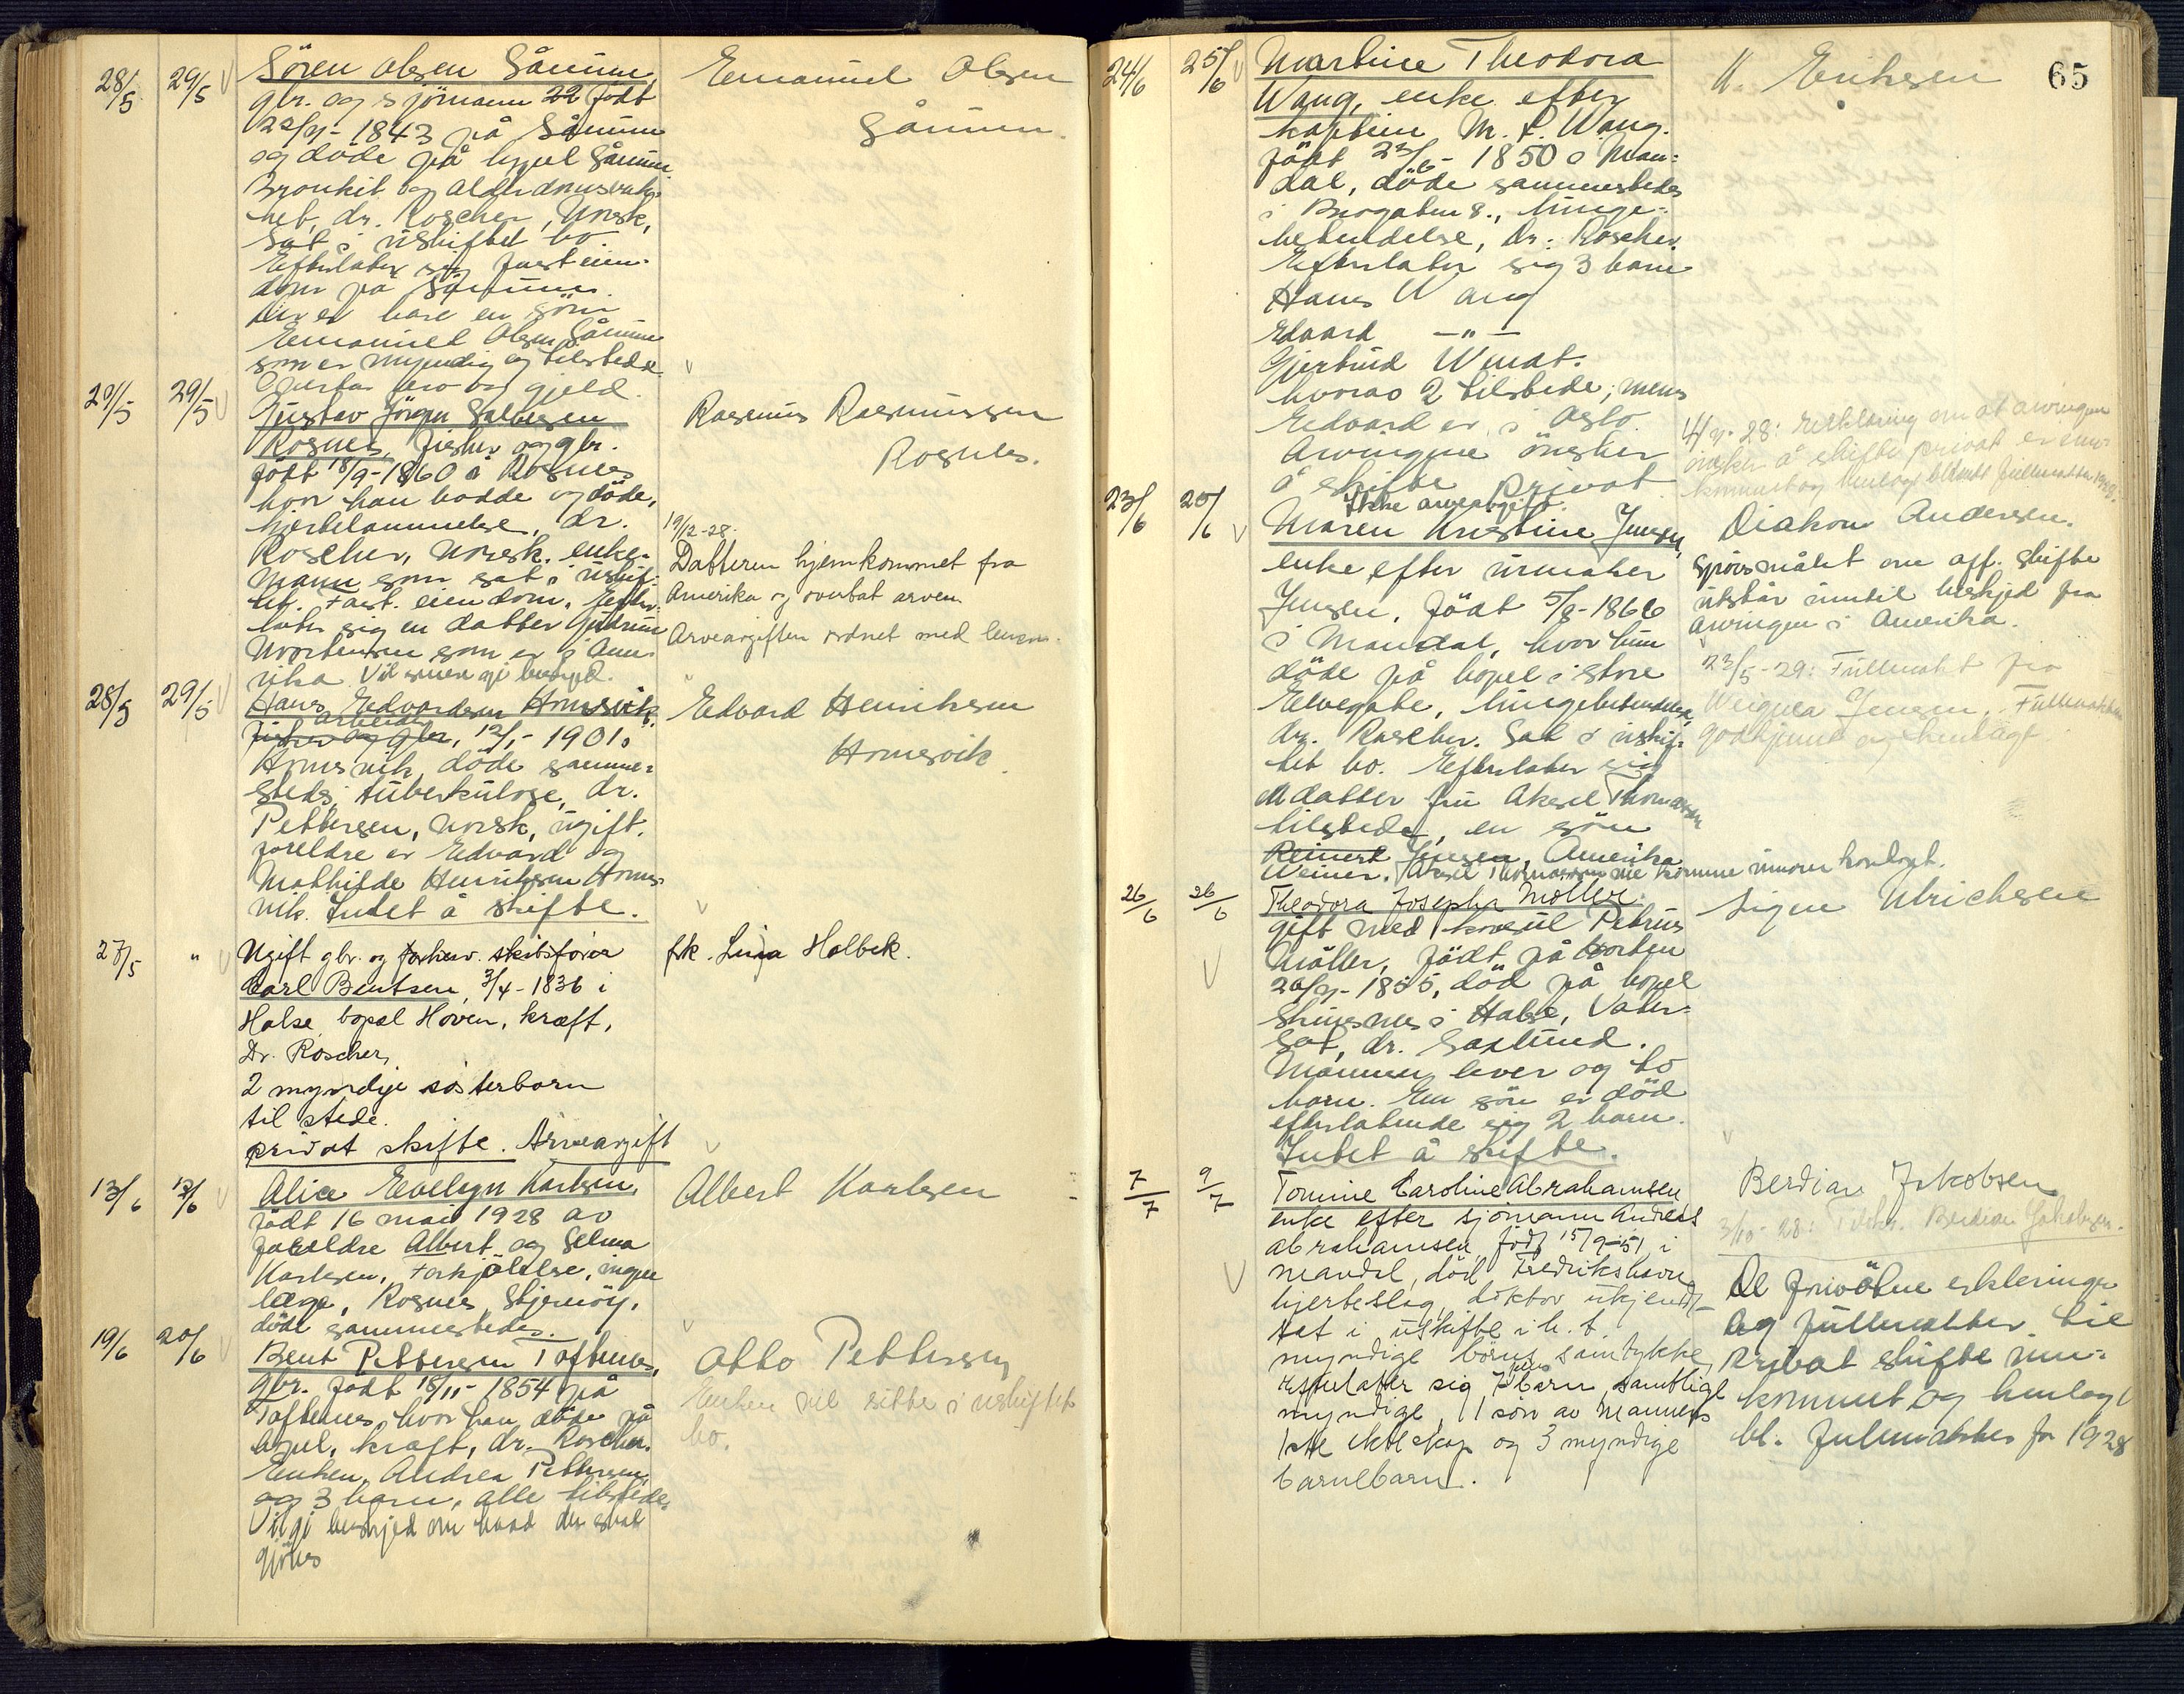 28/5 29/5 Sören Olsen Sånum,
gbr. og sjömann 22 född
22/9-1843 på Sånum
og döde på bopel Sånum
Bronkit og alderdomssvak-
het, dr. Roscher, Norsk,
Sat i uskiftet bo.
Efterlater sig fast eien-
dom på Sånum.
Der er bare en sönn
Emanuel Olsen Sånum
som er myndig og tilstede
gjeld.
Emanuel Olsen
Sånum.
29/5 29/5 Gustav Jörgen Salvesen
Rosnes, fisker og gbr.
födt 18/9-1860 å Rosnes
hvor han bodde og döde,
hjertelammelse, dr.
Roscher, Norsk. enke-
mann som sat i uskif-
tet. Fast. eiendom. Efter-
later sig en datter Gudrun
Mortensen som er i Ame-
rika. Vil senere gi beskjed.
Rasmus Rasmussen
Rosnes.
19/12-28.
Datteren hjemkommet fra
Amerika og overtat arven.
Arveavgiften ordnet med lensm.
28/5 29/5 Hans Edvardsen Homsvik,
arbeider
fisker og gbr, 12/1-1901 å
Homsvik, döde samme-
steds, tuberkulose, dr.
Pettersen, norsk, ugift.
foreldre er Edvard og
Mathilde Henriksen Homs-
vik. Intet å skifte.
Edvard Henriksen
Homsvik.
27/5 " Ugift gbr. og forhenv. skibsförer
Carl Bentsen, 3/4-1836 i
Halse, bopæl Hoven, kræft,
Dr. Roscher,
2 myndige sösterbarn
til stede.
privat skifte. Arveavgift
frk. Lina Holbek.
13/6 13/6 Alice Evelyn Karlsen,
födt 16 mai 1928 av
foreldre Albert og Selma
Karlsen, Forkjölelse, ingen
læge, Rosnes, Skjernöy,
döde sammestedes.
Albert Karlsen
19/6 20/6 Bent Pettersen Toftenes,
gbr. födt 18/11-1854 på
Toftenes, hvor han döde på
bopel, kraft, dr. Roscher.
Enken Andrea Pettersen
og 3 barn, alle tilstede.
Vil gi beskjed om hvad der skal
gjöres
Otto Pettersen
Enken vil sitte i uskiftet
bo.
65
24/6 25/6 Martine Theodora
Wang, enke efter
kaptein M. P. Wang.
födt 23/6-1850 i Man-
dal, döde sammestedes
i Brogaten 8., lunge-
betendelse, Dr. Roscher.
Efterlater sig 3 barn
Hans Wang
Edvard —"—
Gjertrud Wendt.
hvorav 2 tilstede, mens
Edvard er i Oslo.
Arvingene önsker
å skifte privat
Ikke arveavgift.
K. Eriksen
4/9-28: Erklæring om at arvingene
önsker å skifte privat er inn-
kommet og henlagt blandt fullmakter 1928.
23/6 25/6 Maren Kristine Jensen,
enke efter urmaker
Jensen, födt 5/8-1866
i Mandal, hvor hun
döde på bopel i store
Elvegate, lungebetendelse,
dr. Roscher. Sat i uskif-
tet bo. Efterlater sig
datter fru Aksel Thomassen
tilstede, en sönn
Reinert Jensen, Amerika
Weiner. Aksel Thomassen vil komme innom kontoret.
Diakon Andersen.
Spörsmålet om off. skifte
utstår inntil beskjed fra
arvingen i Amerika.
23/5-29: Fullmakt fra
Jensen. Fullmakten
godkjent og henlagt
26/6 26/6 Theodora Josepha Möller
gift med konsul Petrius
Möller, födt på Horten
20/9-1855, död på bopel
Skinsnes i Halse, Vater-
sot, dr. Saxlund.
Mannen lever og to
barn. En sön er död
efterlatende sig 2 barn.
Intet å skifte.
Signe Ulrichsen
7/7 9/7 Tomine Caroline Abrahamsen
enke efter sjömann Andreas
Abrahamsen, födt 15/9-51 i
Mandal, död Fredrikshavn,
hjerteslag, doktor ukjendt
sat i uskifte i h. t.
myndige börns samtykke,
efterlater sig 7 barn, samtlige
myndige, 1 sön av mannens
1ste ekteskap og 3 myndige
barnebarn.
Berdian Jakobsen
3/10-28: Tilskr. Berdian Jakobsen.
De fornödne erkleringer
og fullmakter til
privat skifte inn-
kommet og henlagt
bl. fullmakter for 1928